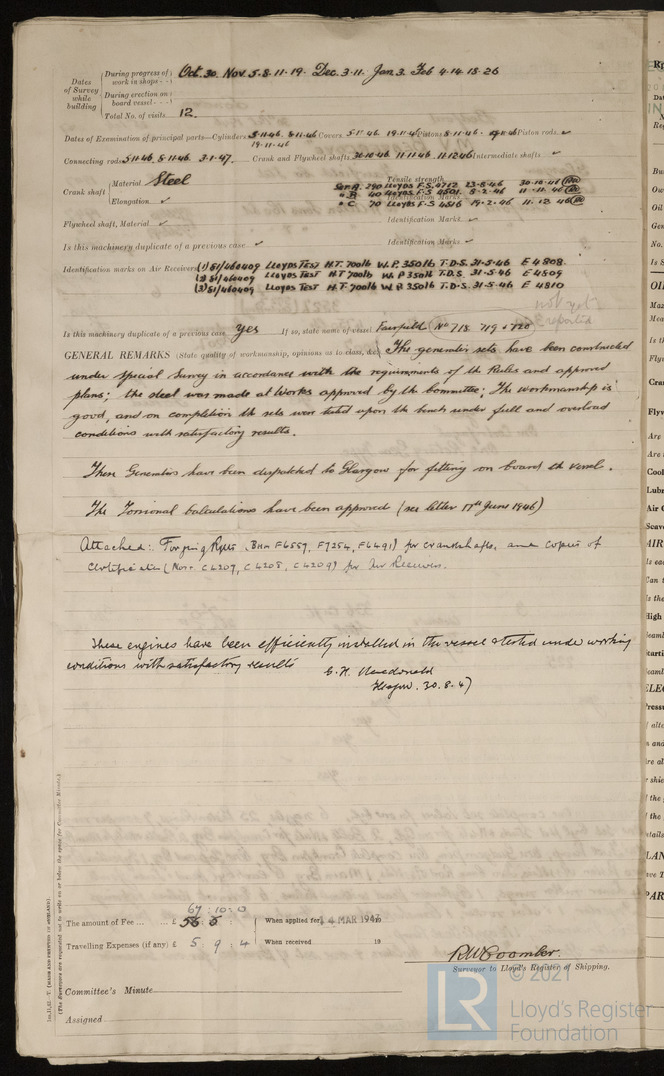 Dates of Survey while building
During progress of work in shops - - Oct. 30. Nov. 5. 8. 11. 19. Dec. 3. 11. Jan 3. Feb 4. 14. 18. 26
During erection on board vessel - - -
Total No. of visits 12.
Dates of Examination of principal parts—Cylinders 5.11.46. 8.11.46 Covers 5.11.46. 19.11.46 Pistons 8.11.46. 19.11.46 Piston rods ✓
19.11.46
Connecting rods 5.11.46. 8.11.46. 3.1.47. Crank and Flywheel shafts 30.10.46 11.11.46 11.12.46 Intermediate shafts ✓
Crank shaft Material Steel Tensile strength
Elongation ✓ Identification Marks
Set A. 790 Lloyds F.S. 4712 23.8.46 30.10.46
" B 40 Lloyds F.S 4501. 8.2.46 11.11.46
" C 70 Lloyds F.S 4516 19.2.46 11.12.46
Flywheel shaft, Material ✓ Identification Marks ✓
Is this machinery duplicate of a previous case ✓ Identification Marks ✓
Identification marks on Air Receivers (1) 51/460409 Lloyds Test H.T. 700lb W.P. 350lb T.D.S. 31.5.46 E 4808
(2) 51/460409 Lloyds Test H.T 700lb W.P 350lb T.D.S. 31.5.46 E 4809
(3) 51/460409 Lloyds Test H.T. 700lb W.P. 350lb T.D.S. 31.5.46 E 4810
not yet reported
Is this machinery duplicate of a previous case Yes If so, state name of vessel Fairfield No 718 719 & 720
GENERAL REMARKS (State quality of workmanship, opinions as to class, &c.) The generator sets have been constructed
under special survey in accordance with the requirements of the Rules and approved
plans; the steel was made at Works approved by the Committee; The workmanship is
good, and on completion the sets were tested upon the bench under full and overload
conditions with satisfactory results.
These Generators have been dispatched to Glasgow for fitting on board the vessel.
The Torsional Calculations have been approved (see letter 17th June 1946)
Attached: Forging Rpts (BHm F6559, F7254, F6491) for crankshafts, and copies of
Certificates (Nos. C4207, C4208, C4209) for Air Receivers.
These engines have been efficiently installed in the vessel & tested under working
conditions with satisfactory results
G. H. Macdonald
Glasgow. 30.8.47
67 : 10 : 0
The amount of Fee ... ... £ 56 : 5 : When applied for 14 MAR 1947
Travelling Expenses (if any) £ 5 : 9 : 4 When received 19
R W Coomber.
Surveyor to Lloyd's Register of Shipping.
Committee's Minute
Assigned
(The Surveyors are requested not to write on or below the space for Committee Minute.)
© 2021
LR
Lloyd's Register
Foundation